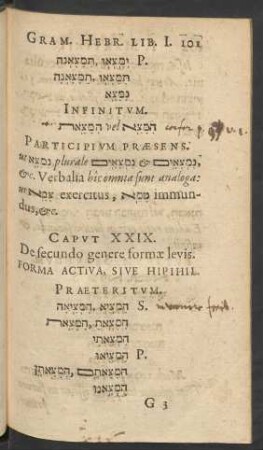 GRAM. HEBR. LIB. I. 101
ימצאו, תמצאנה P.
תמצאו, תמצאנה
נמצא
INFINITVM.
המצא vel המצאת confer p.
PARTICIPIVM PRÆSENS.
נמצא plurale נמצאים & נמצאים,
&c. Verbalia his omnia sunt analoga:
צבא exercitus, טמא immun-
dus, &c.
CAPVT XXIX.
De secundo genere formæ levis.
FORMA ACTIVA, SIVE HIPIHIL.
PRAETERITVM.
המציא, המציאה S.
המצאת, המצאת
המצאתי
המציאו P.
המצאתם, המצאתן
המצאנו
G 3